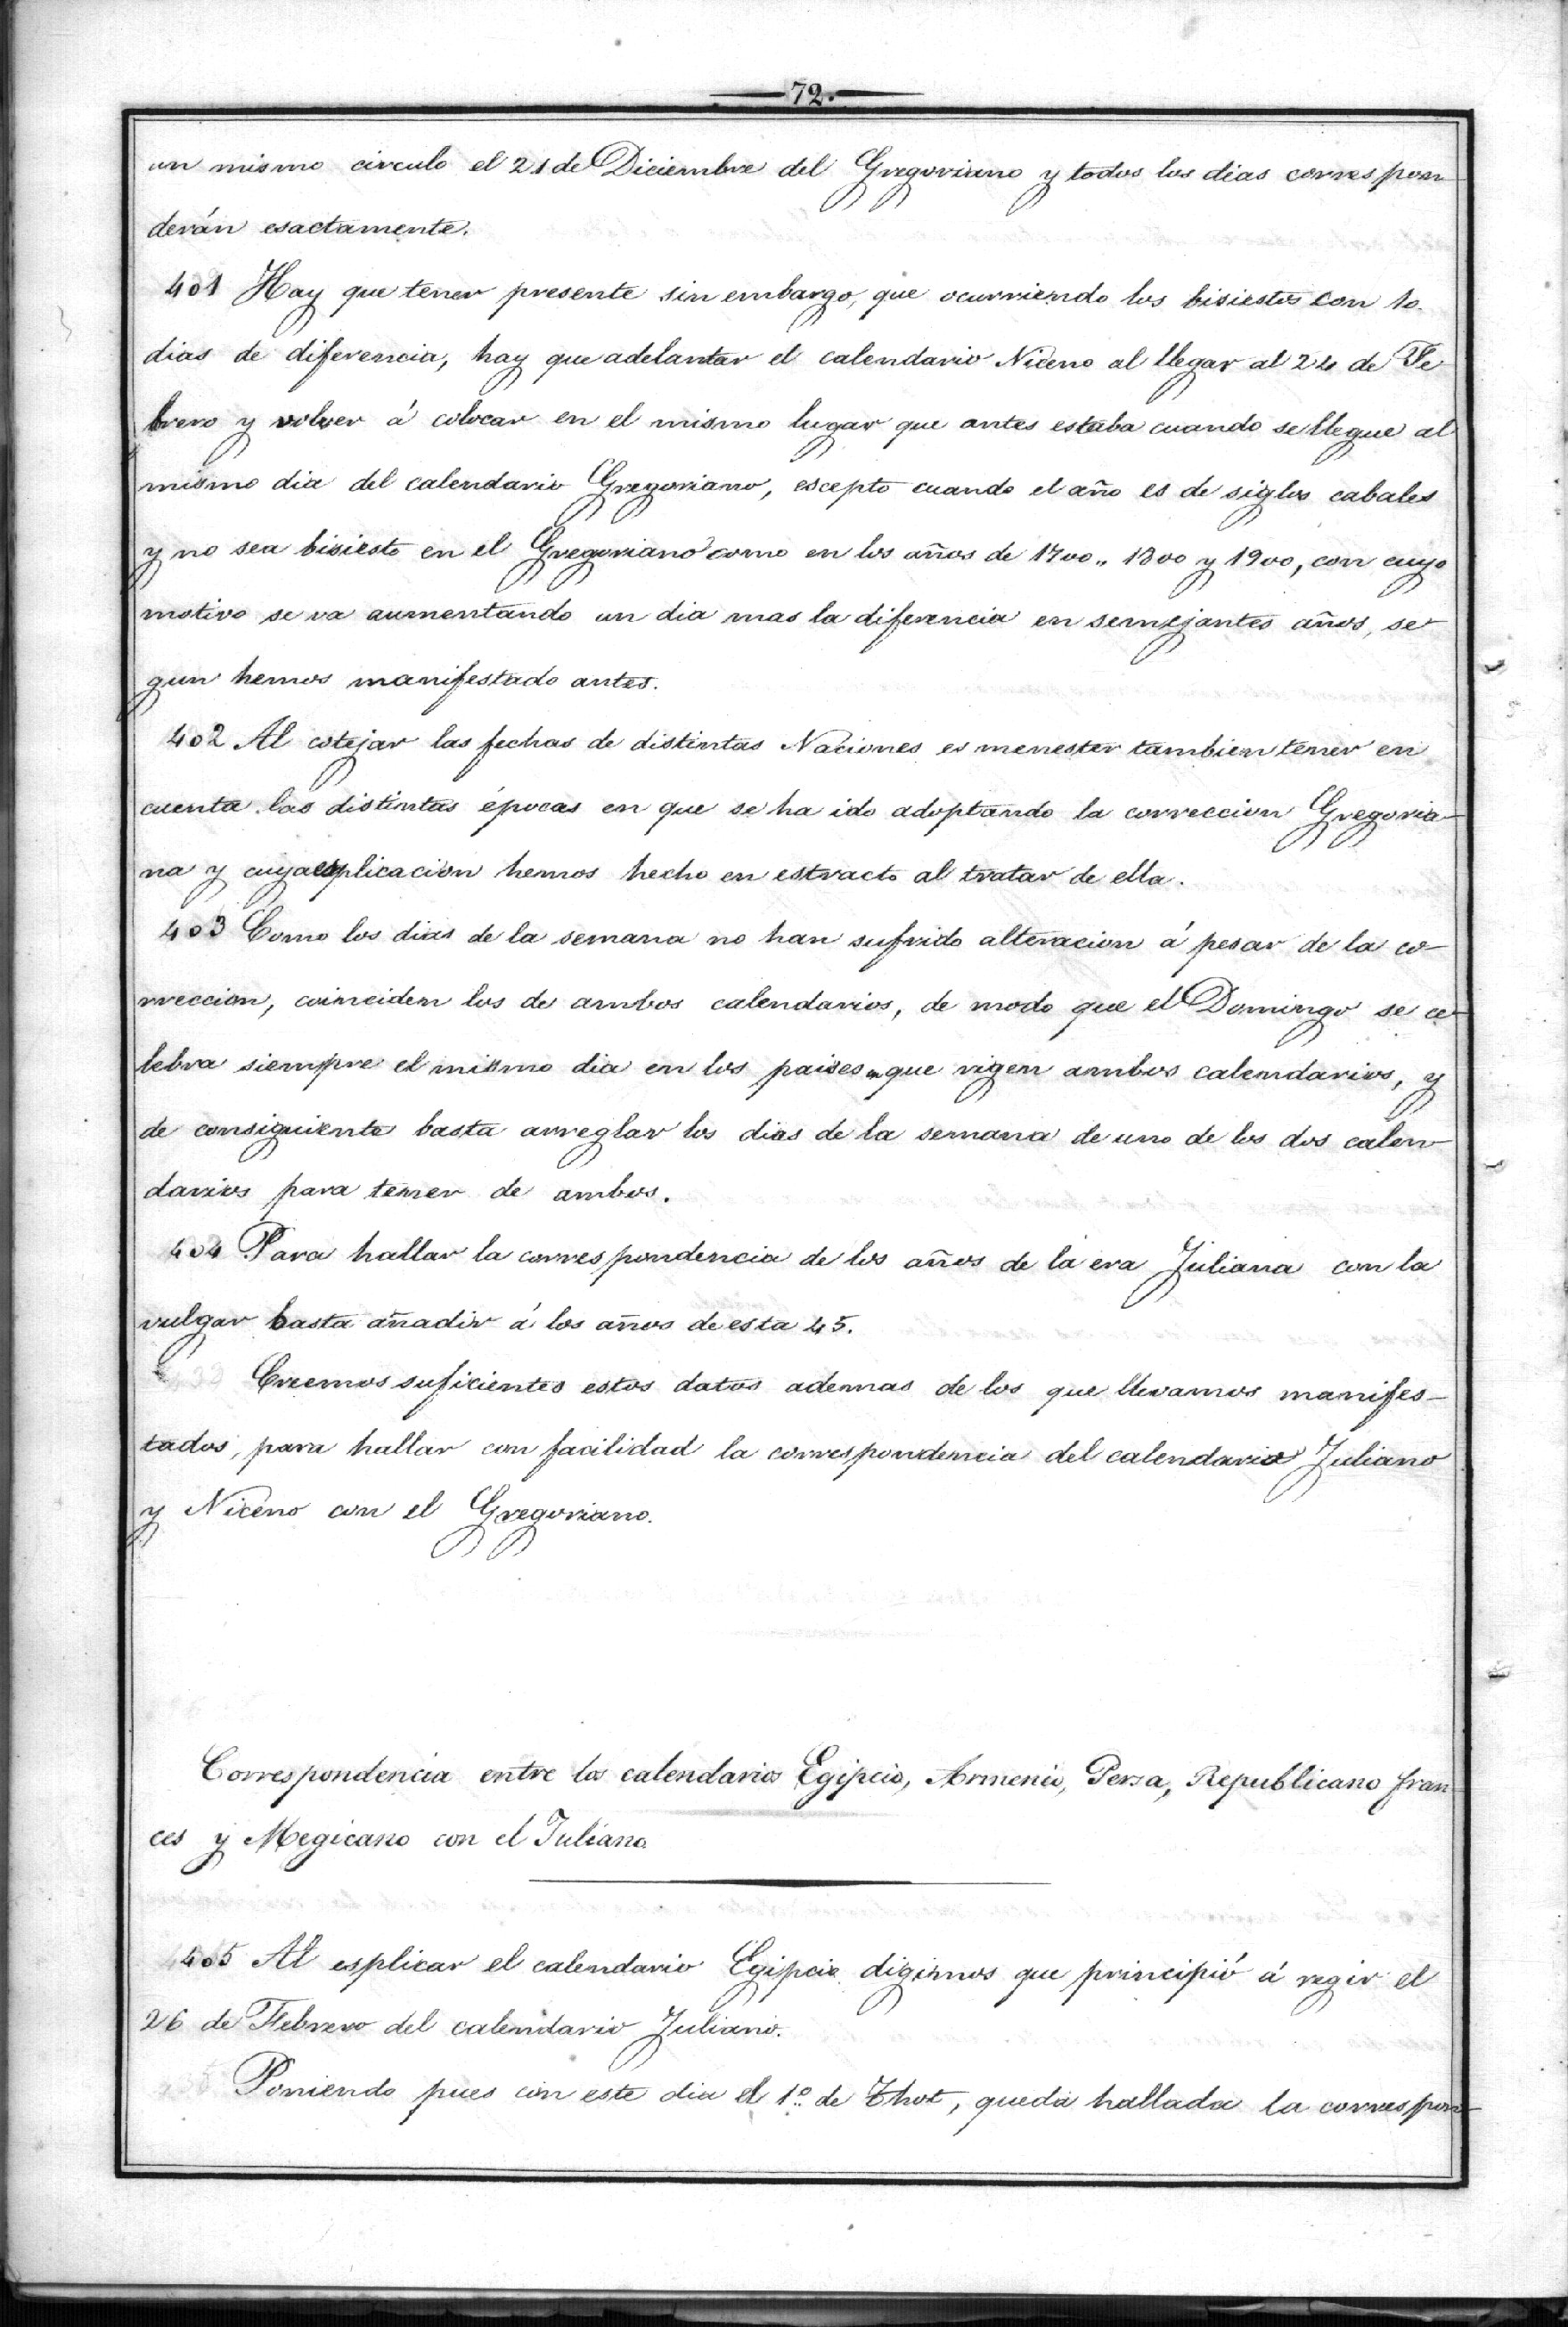 72.
un mismo circulo el 21 de Diciembre del Gregoriano y todos los dias correspon
derán esactamente.
401 Hay que tener presente sin embargo, que ocurriendo los bisiestos con 10.
dias de diferencia, hay que adelantar el calendario Niceno al llegar al 24 de Fe
brero y volver á colocar en el mismo lugar que antes estaba cuando se llegue al
mismo dia del calendario Gregoriano, escepto cuando el año es de siglos cabales
y no sea bisiesto en el Gregoriano como en los años de 1700„ 1800 y 1900, con cuyo
motivo se va aumentando un dia mas la diferencia en semejantes años, se
gun hemos manifestado antes.
402 Al cotejar las fechas de distintas Naciones es menester tambien tener en
cuenta las distintas épocas en que se ha ido adoptando la correccion Gregoria-
na y cuya esplicacion hemos hecho en estracto al tratar de ella.
403 Como los dias de la semana no han sufrido alteracion á pesar de la co-
rreccion, coinciden los de ambos calendarios, de modo que el Domingo se ce-
lebra siempre el mismo dia en los paises en que rigen ambos calendarios, y
de consiguiente basta arreglar los dias de la semana de uno de los dos calen-
darios para tener de ambos.
404 Para hallar la correspondencia de los años de la era Juliana con la
vulgar basta añadir á los años de esta 45.
Creemos suficientes estos datos ademas de los que llevamos manifes-
tados, para hallar con facilidad la correspondencia del calendario Juliano
y Niceno con el Gregoriano.
Correspondencia entre los calendarios Egipcio, Armenio, Persa, Republicano fran
ces y Megicano con el Juliano.
405 Al esplicar el calendario Egipcio digimos que principió á regir el
26 de Febrero del calendario Juliano.
Poniendo pues con este dia el 1º de Thot, queda hallada la correspon-